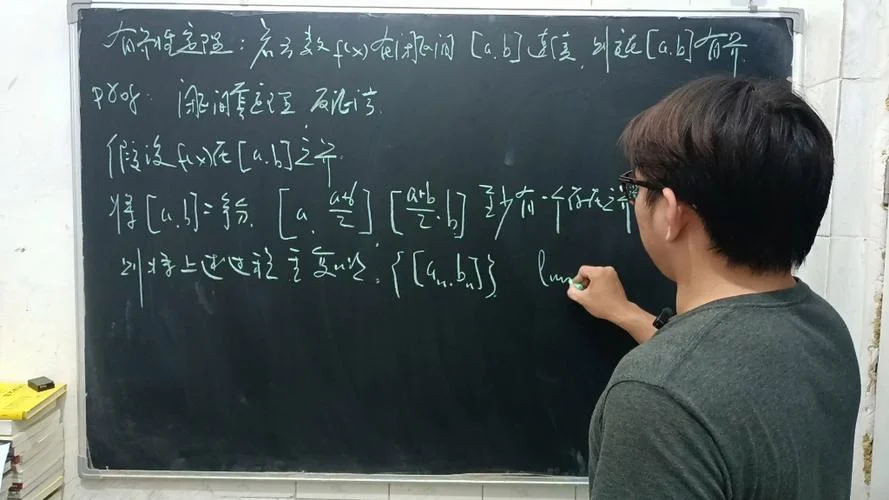 有界性定理：若函数f(x)在闭区间[a.b]连续，则它在[a.b]有界
prof：闭区间套定理 反证法.
假设f(x)在[a.b]无界
将[a.b]二等分 [a. a+b/2] [a+b/2.b] 至少有一个 f(x)无界
则将上述过程重复n次. {[an.bn]} lim